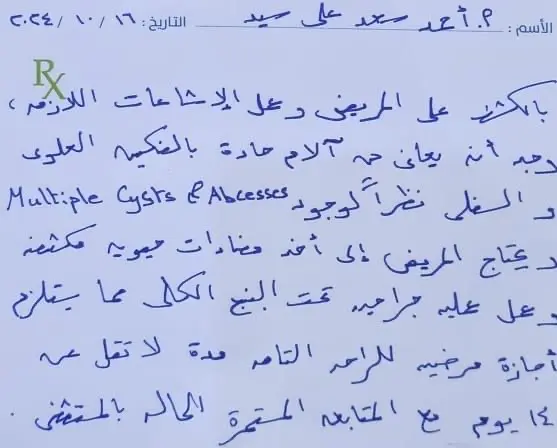 الأسم: م. أحمد سعد على سيد التاريخ: ١٦ / ١٠ / ٢٠٢٤
Rx
بالكشف على المريض وعمل الإشاعات اللازمه،
وجد أنه يعانى من آلام حادة بالفكين العلوى
و السفلى نظراً لوجود Multiple Cysts & Abcesses
و يحتاج المريض إلى أخذ مضادات حيويه مكثفه
و عمل عمليه جراحيه تحت البنج الكلى مما يستلزم
أجازة مرضيه للراحه التامه مدة لا تقل عن
١٤ يوم مع المتابعه المستمرة الحاله بالمستشفى .